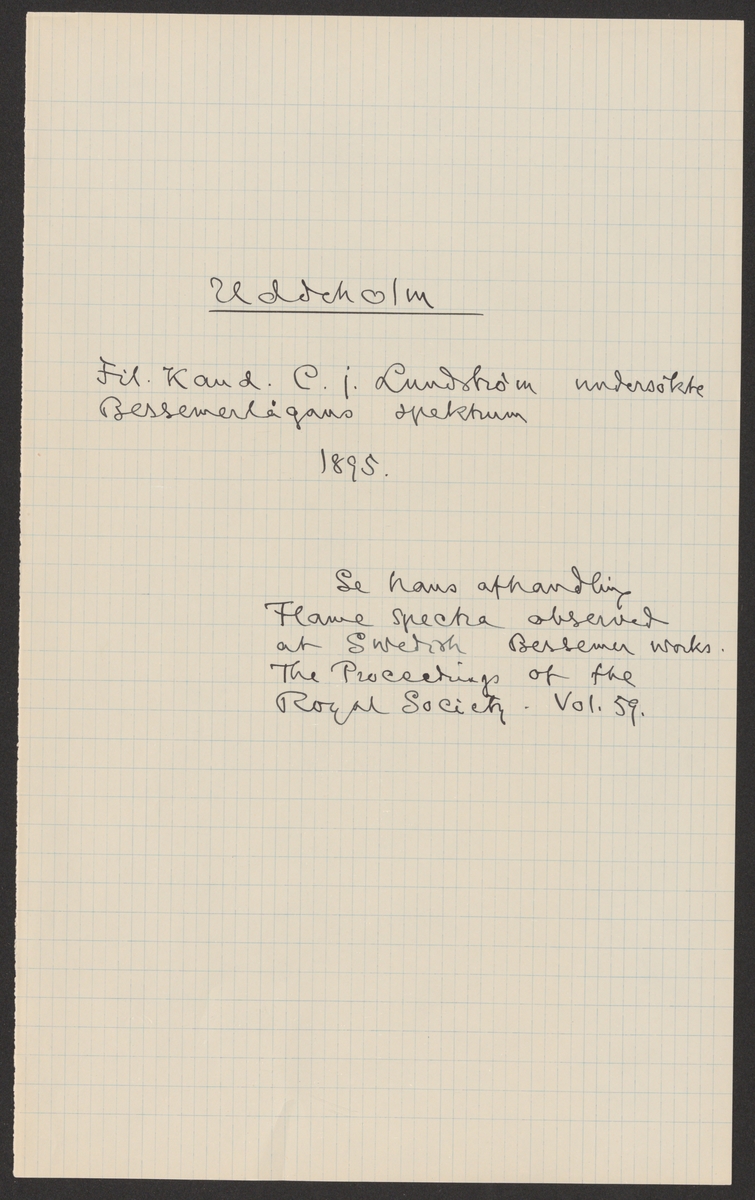 Uddeholm
Fil. Kand. C. j. Lundström undersökte
Bessemerlågans spektrum
1895.
Se hans afhandling
Flame spectra observed
at Swedish Bessemer works.
The Proceedings of the
Royal Society. Vol. 59.